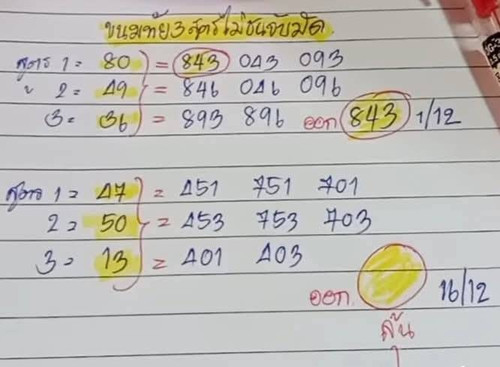 ขนมทัย3สูตรไม่ชนจับมัด
สูตร 1 = 80 = 843 043 093
" 2 = 49 = 846 046 096
3 = 36 = 893 896 ออก 843 1/12
สูตร 1 = 47 = 451 751 701
2 = 50 = 453 753 703
3 = 13 = 401 403
ออก 16/12
ลุ้น